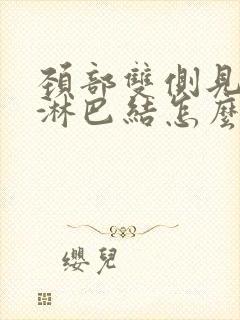 頚部雙側見
淋巴結怎麼
纓兒